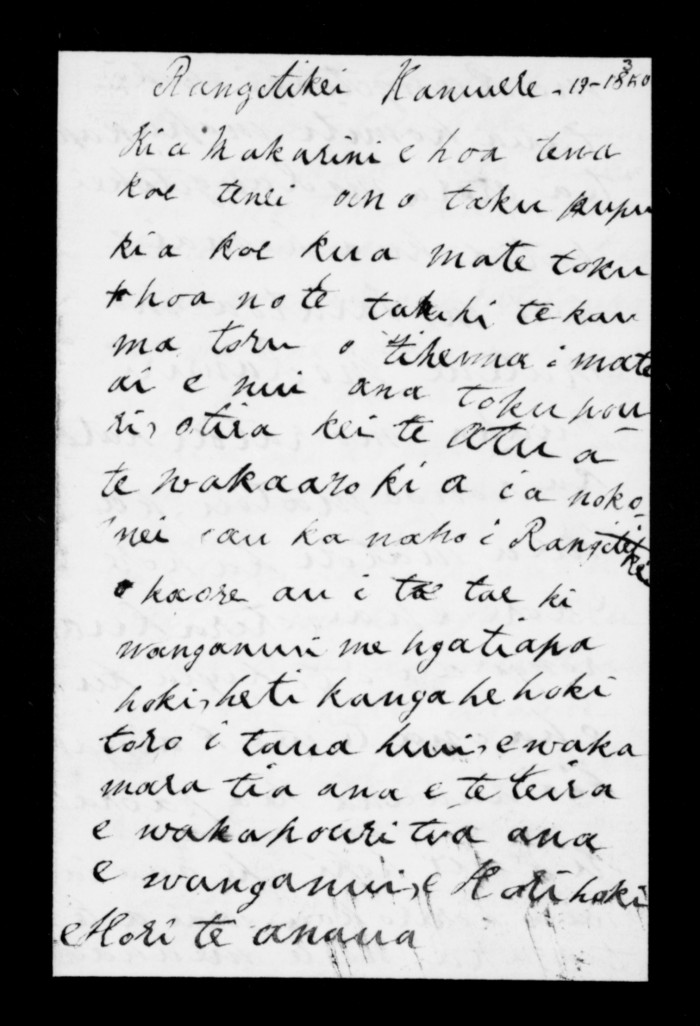 Rangitikei Hanuere - 19 - 1850
Kia Makarini e hoa tena
koe tenei ano taku kupu
kia koe kua mate toku
hoa no te takihi tekau
ma toru o tihema i mate
ai e nui ana toku pou
ri, otira kei te Atua
te wakaaro ki a ia noko
nei au ka noho i Rangitikei
kaore au i tae ki
wanganui me ngatiapa
hoki, heti kanga he hoki
toro i taua hui, e waka
mara tia ana e te teira
e wakapouri tia ana
e wanganui, e Hori hoki
e Hori te anaua